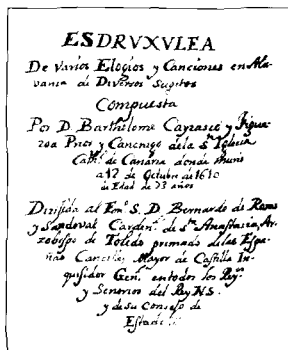 ESDRVXVLEA
De varios Elogios y Canciones en Ala-
vania de Diversos Sugetos
Compuesta
Por D. Barthelome Cayrasco y Figue-
roa Prior y Canonigo de la Sta Iglecia
Cathl de Canaria donde murio
a 12 de Octubre de 1610
de Edad de 73 años
Dirigida al Emo S. D. Bernardo de Roxas
y Sandoval Cardenl de Sta Anastacia, Ar-
zobispo de Toledo primado de las Espa-
ñas Canciller Mayor de Castilla In-
quisidor Genl en todos los Reynos
y Señorios del Rey N.S.
y de su Consejo de
Estado